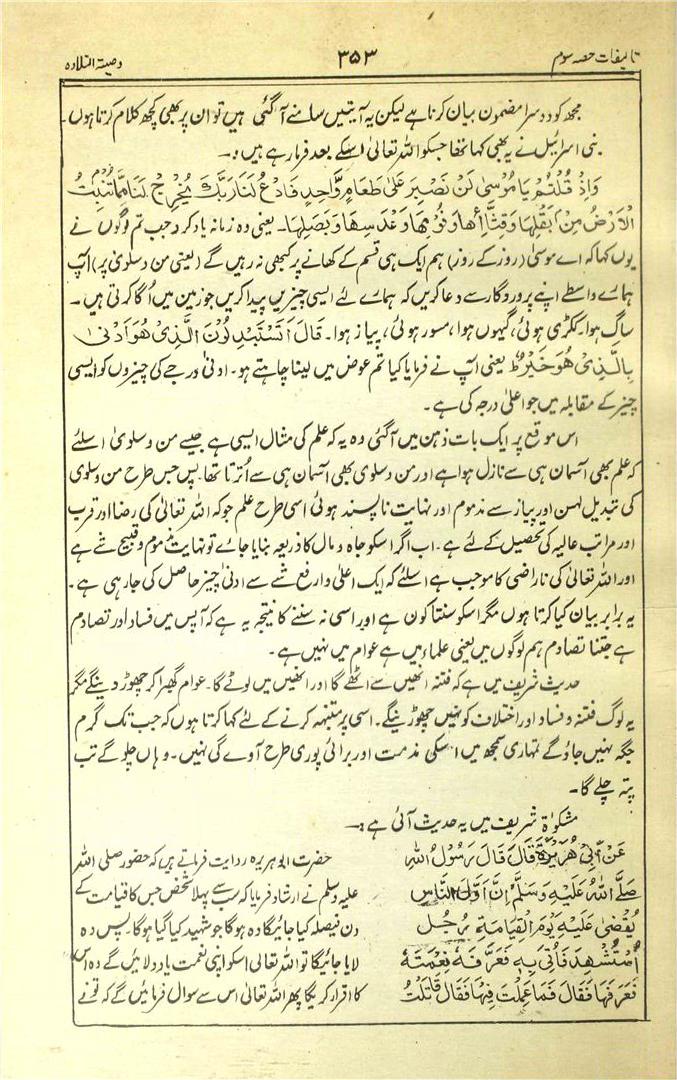 تالیفات حصہ سوم ۳۵۳ وصیۃ التلاوہ
مجھ کو دوسرا مضمون بیان کرنا ہے لیکن یہ آیتیں سامنے آگئی ہیں تو ان پر بھی کچھ کلام کرتا ہوں۔
بنی اسرائیل نے یہ بھی کہا تھا جسکو اللہ تعالیٰ اسکے بعد فرما رہے ہیں :۔
وَاِذْ قُلْتُمْ يَا مُوْسٰى لَنْ نَصْبِرَ عَلٰى طَعَامٍ وَّاحِدٍ فَادْعُ لَنَا رَبَّكَ يُخْرِجْ لَنَا مِمَّا تُنْبِتُ
الْاَرْضُ مِنْۢ بَقْلِهَا وَقِثَّآئِهَا وَفُوْمِهَا وَعَدَسِهَا وَبَصَلِهَا۔ یعنی وہ زمانہ یاد کرو جب تم لوگوں نے
یوں کہا کہ اے موسیٰ (روز کے روز) ہم ایک ہی قسم کے کھانے پر کبھی نہ رہیں گے (یعنی من و سلویٰ پر) آپ
ہمارے واسطے اپنے پروردگار سے دعا کریں کہ ہمارے لئے ایسی چیزیں پیدا کریں جو زمین میں اُگا کرتی ہیں ۔
ساگ ہوا۔ ککڑی ہوئی، گیہوں ہوا، مسور ہوئی، پیاز ہوا۔ قَالَ اَتَسْتَبْدِلُوْنَ الَّذِىْ هُوَ اَدْنٰى
بِالَّذِىْ هُوَ خَيْرٌ ط یعنی آپ نے فرمایا کیا تم عوض میں لینا چاہتے ہو۔ ادنیٰ درجے کی چیزوں کو ایسی
چیز کے مقابلہ میں جو اعلیٰ درجہ کی ہے۔
اس موقع پر ایک بات ذہن میں آگئی وہ یہ کہ علم کی مثال ایسی ہے جیسے من و سلویٰ اسلئے
کہ علم بھی آسمان ہی سے نازل ہوا ہے اور من و سلویٰ بھی آسمان ہی سے اُترتا تھا۔ پس جس طرح من و سلویٰ
کی تبدیل لہسن اور پیاز سے مذموم اور نہایت ناپسند ہوئی اسی طرح علم جو کہ اللہ تعالیٰ کی رضا اور قرب
اور مراتب عالیہ کی تحصیل کے لئے ہے۔ اب اگر اسکو جاہ و مال کا ذریعہ بنایا جائے تو نہایت مذموم و قبیح شے ہے
اور اللہ تعالیٰ کی ناراضی کا موجب ہے اسلئے کہ ایک اعلیٰ و ارفع شے سے ادنیٰ چیز حاصل کی جا رہی ہے۔
یہ برابر بیان کیا کرتا ہوں مگر اسکو سنتا کون ہے اور اسی نہ سننے کا نتیجہ یہ ہے کہ آپس میں فساد اور تصادم
ہے جتنا تصادم ہم لوگوں میں یعنی علماء میں ہے عوام میں نہیں ہے۔
حدیث شریف میں ہے کہ فتنہ انھیں سے اٹھے گا اور انھیں میں لوٹے گا۔ عوام گھبرا کر چھوڑ دینگے مگر
یہ لوگ فتنہ و فساد اور اختلاف کو نہیں چھوڑینگے۔ اسی پر متنبہ کرنے کے لئے کہا کرتا ہوں کہ جب تک گرم
جگہ نہیں جاؤ گے تمہاری سمجھ میں اسکی مذمت اور برائی پوری طرح آوے گی نہیں۔ وہاں چلو گے تب
پتہ چلے گا۔
مشکوٰۃ شریف میں یہ حدیث آئی ہے :۔
عَنْ اَبِىْ هُرَيْرَةَ قَالَ قَالَ رَسُوْلُ اللهِ
صَلَّے اللهُ عَلَيْهِ وَسَلَّمَ اِنَّ اَوَّلَ النَّاسِ
يُقْضٰى عَلَيْهِ يَوْمَ الْقِيَامَةِ رَجُلٌ
اُسْتُشْهِدَ فَاُتِىَ بِهٖ فَعَرَّفَهٗ نِعْمَتَهٗ
فَعَرَفَهَا فَقَالَ فَمَا عَمِلْتَ فِيْهَا فَقَالَ قَاتَلْتُ
حضرت ابوہریرہ روایت فرماتے ہیں کہ حضور صلی اللہ
علیہ وسلم نے ارشاد فرمایا کہ سب سے پہلا شخص جس کا قیامت کے
دن فیصلہ کیا جائیگا وہ ہوگا جو شہید کیا گیا ہوگا۔ پس وہ
لایا جائیگا تو اللہ تعالیٰ اسکو اپنی نعمت یاد دلائیں گے وہ اس
کا اقرار کریگا پھر اللہ تعالیٰ اس سے سوال فرمائیں گے کہ تونے